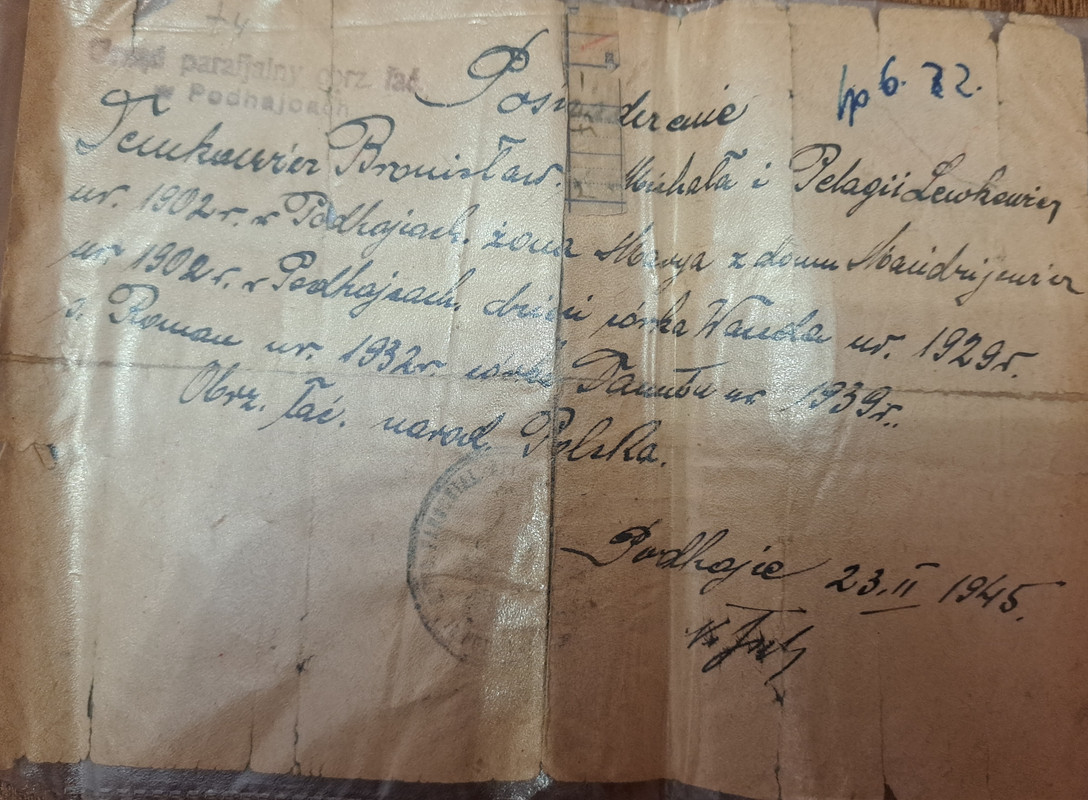 Urząd parafjalny obrz. łać.
w Podhajcach
hp 6. 72.
Poświadczenie
Bronisław. Michała i Pelagii Lewkowicz
ur. 1902 r. w Podhajcach. żona Marya z domu
ur. 1902 r. w Podhajcach. dzieci córka Wanda ur. 1929 r.
s. Roman ur. 1932 r. córka Danuta ur. 1939 r.
Obrz. łać. narod. Polska.
Podhajce 23.II 1945.